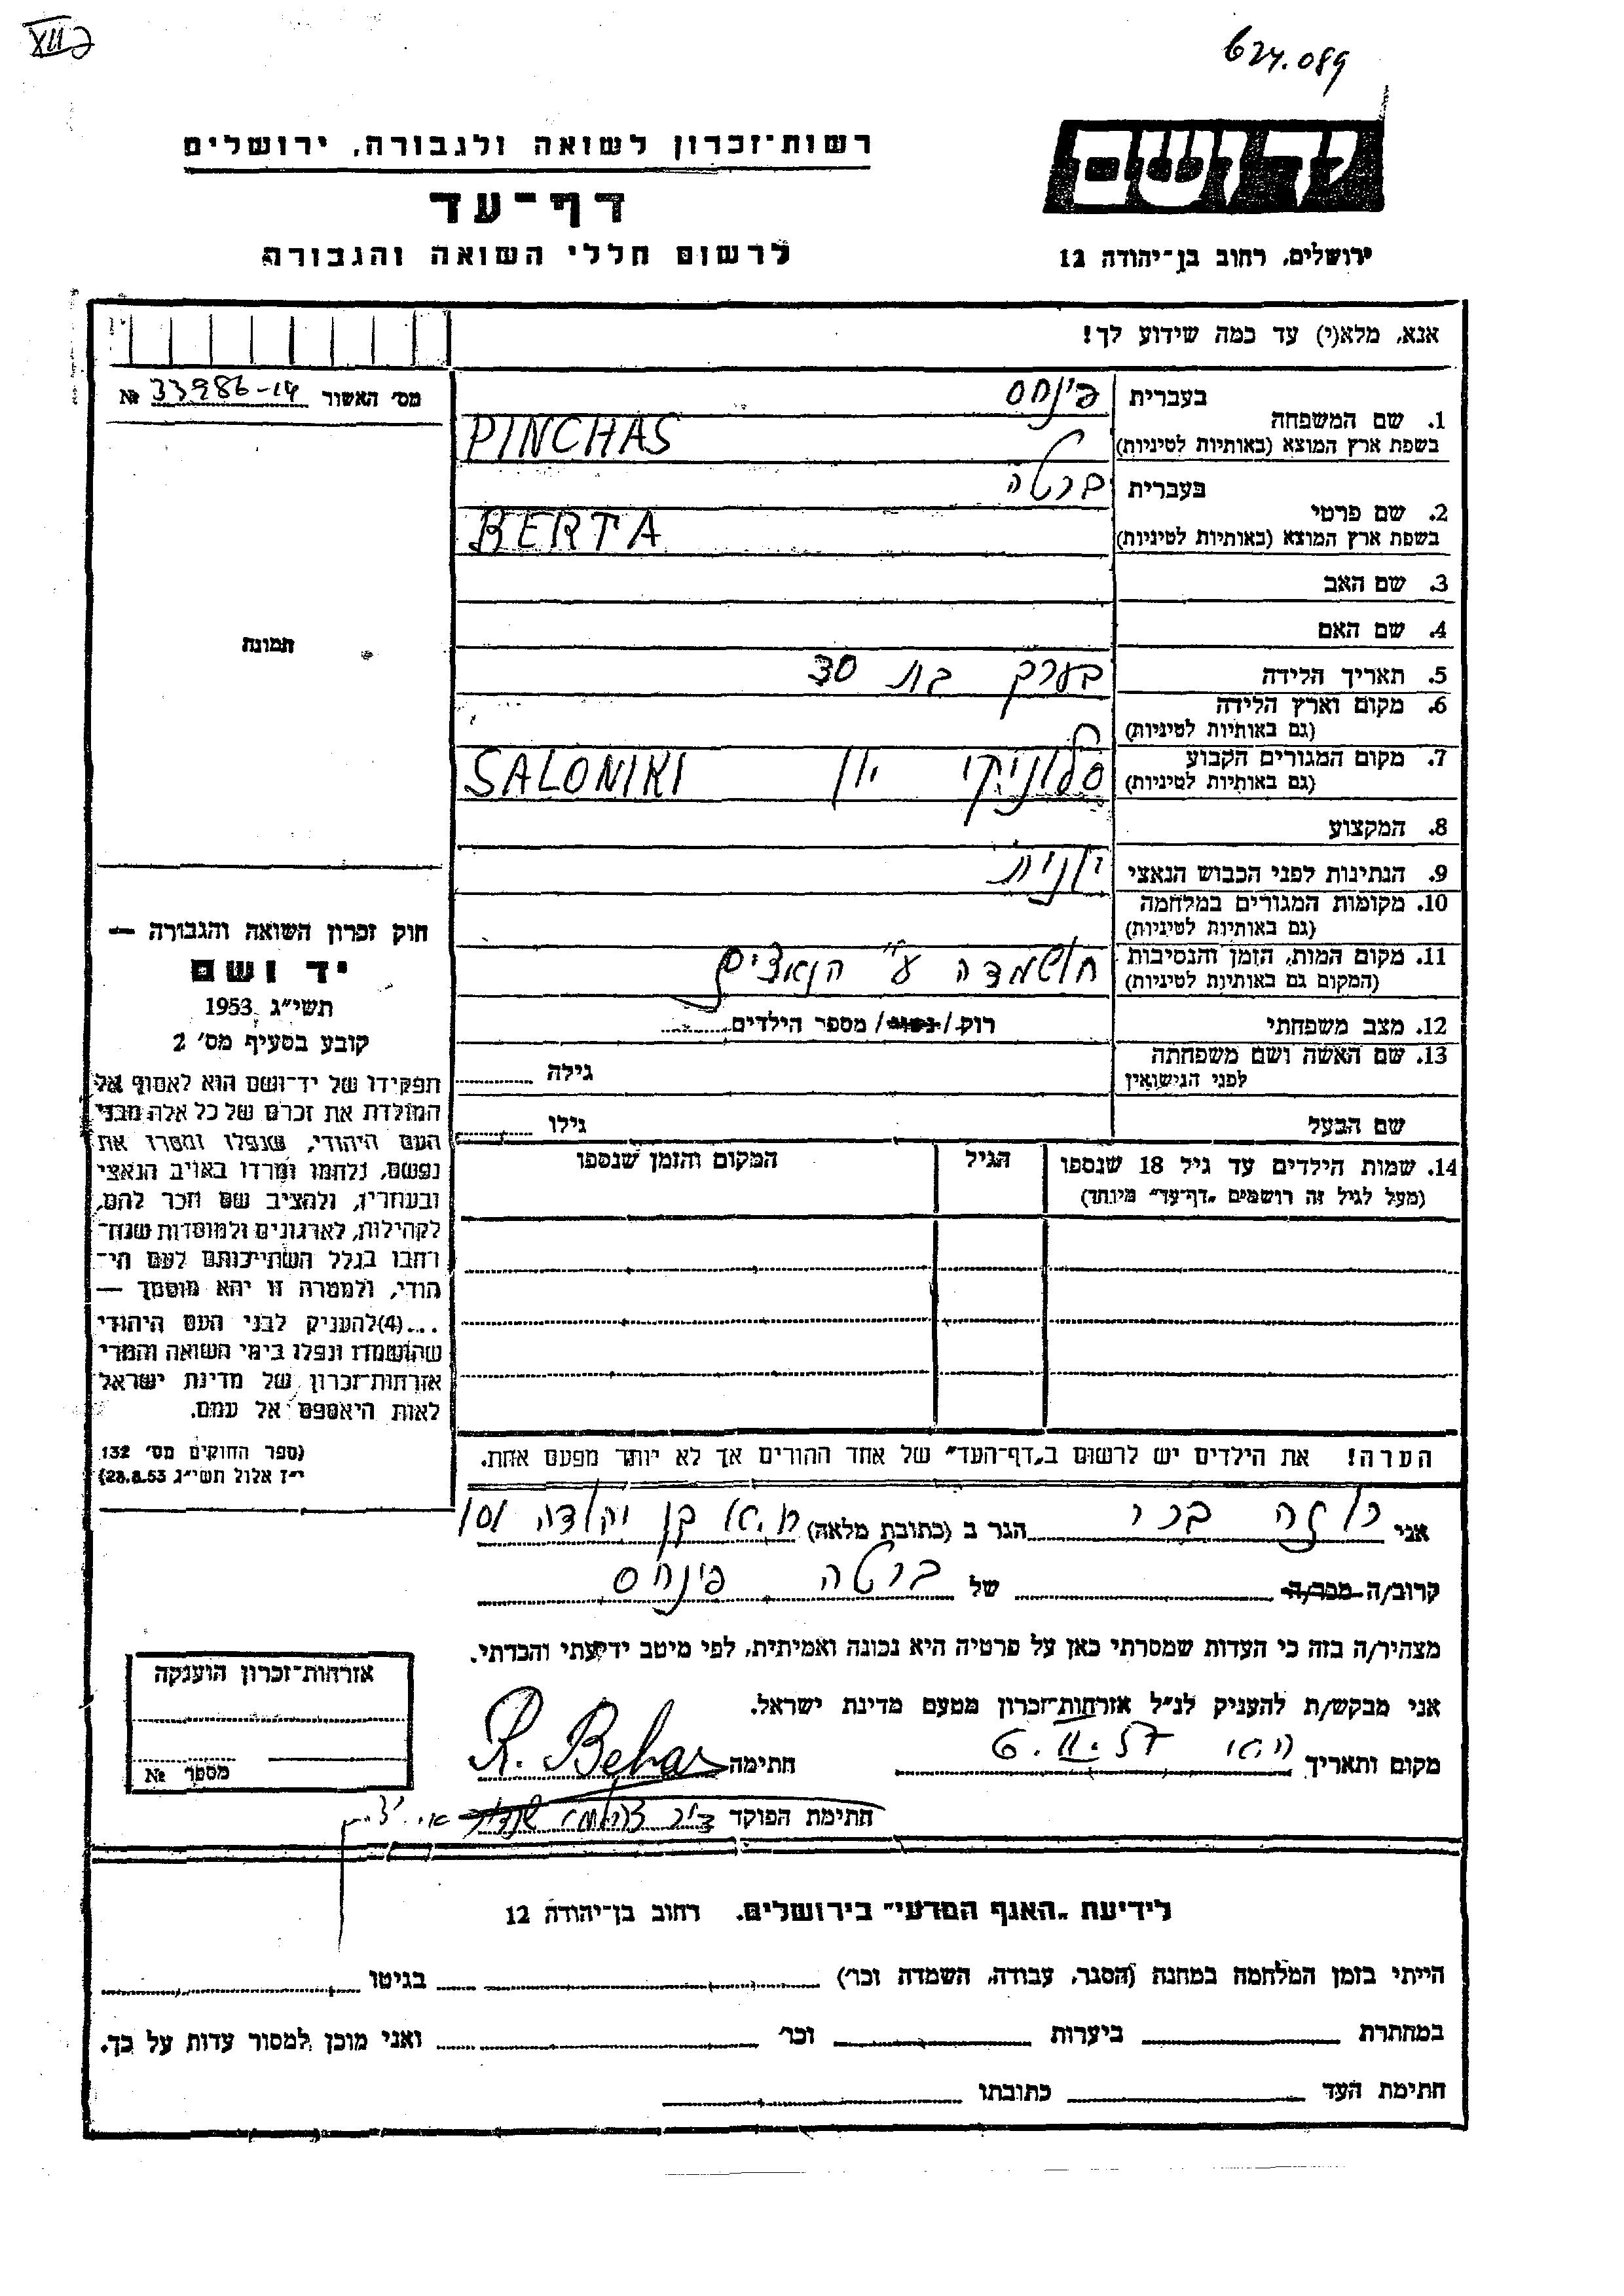 XII ג
624.089
יד ושם
ירושלים, רחוב בן־יהודה 12
רשות־זכרון לשואה ולגבורה, ירושלים
דף־עד
לרשום חללי השואה והגבורה
אנא, מלא(י) עד כמה שידוע לך!
מס׳ האשור 33986-14 №
1. שם המשפחה בעברית פינחס
בשפת ארץ המוצא (באותיות לטיניות) PINCHAS
2. שם פרטי בעברית ברטה
בשפת ארץ המוצא (באותיות לטיניות) BERTA
3. שם האב
4. שם האם
תמונה
5. תאריך הלידה בערך בת 30
6. מקום וארץ הלידה
(גם באותיות לטיניות)
7. מקום המגורים הקבוע סלוניקי יון SALONIKI
(גם באותיות לטיניות)
8. המקצוע
9. הנתינות לפני הכבוש הנאצי יונית
10. מקומות המגורים במלחמה
(גם באותיות לטיניות)
11. מקום המות, הזמן והנסיבות הושמדה ע״י הנאצים
(המקום גם באותיות לטיניות)
12. מצב משפחתי רוק/נשוי/ מספר הילדים
13. שם האשה ושם משפחתה
לפני הנישואין גילה
שם הבעל גילו
14. שמות הילדים עד גיל 18 שנספו הגיל המקום והזמן שנספו
(מעל לגיל זה רושמים „דף־עד״ מיוחד)
חוק זכרון השואה והגבורה —
יד ושם
תשי״ג 1953
קובע בסעיף מס׳ 2
תפקידו של יד־ושם הוא לאסוף אל
המולדת את זכרם של כל אלה מבני
העם היהודי, שנפלו ומסרו את
נפשם, נלחמו ומרדו באויב הנאצי
ובעוזריו, ולהציב שם וזכר להם,
לקהילות, לארגונים ולמוסדות שנח־
רבו בגלל השתייכותם לעם הי־
הודי, ולמטרה זו יהא מוסמך —
...(4)להעניק לבני העם היהודי
שהושמדו ונפלו בימי השואה והמרי
אזרחות־זכרון של מדינת ישראל
לאות היאספם אל עמם.
(ספר החוקים מס׳ 132
י״ז אלול תשי״ג 28.8.53)
הערה! את הילדים יש לרשום ב„דף־העד״ של אחד ההורים אך לא יותר מפעם אחת.
אני רוזה בכר הגר ב (כתובת מלאה) ת.א. בן יהודה 101
קרוב/ה מכר/ה של ברטה פינחס
מצהיר/ה בזה כי העדות שמסרתי כאן על פרטיה היא נכונה ואמיתית, לפי מיטב ידיעתי והכרתי.
אני מבקש/ת להעניק לנ״ל אזרחות־זכרון מטעם מדינת ישראל.
מקום ותאריך ת.א. 6.II.57 חתימה R. Behar
חתימת הפוקד
אזרחות־זכרון הוענקה
מספר №
לידיעת „האגף המדעי״ בירושלים, רחוב בן־יהודה 12
הייתי בזמן המלחמה במחנה (הסגר, עבודה, השמדה וכו׳) בגיטו
במחתרת ביערות וכו׳ ואני מוכן למסור עדות על כך.
חתימת העד כתובתו